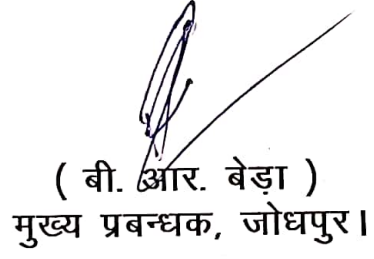 ( बी. आर. बेड़ा )
मुख्य प्रबन्धक, जोधपुर।